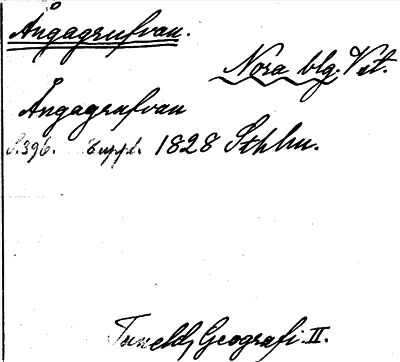 Ångagrufvan.
Nora blg. Vst.
Ångagrufvan
S. 396. Suppl. 1828 Sthlm.
Tuneld, Geografi II.